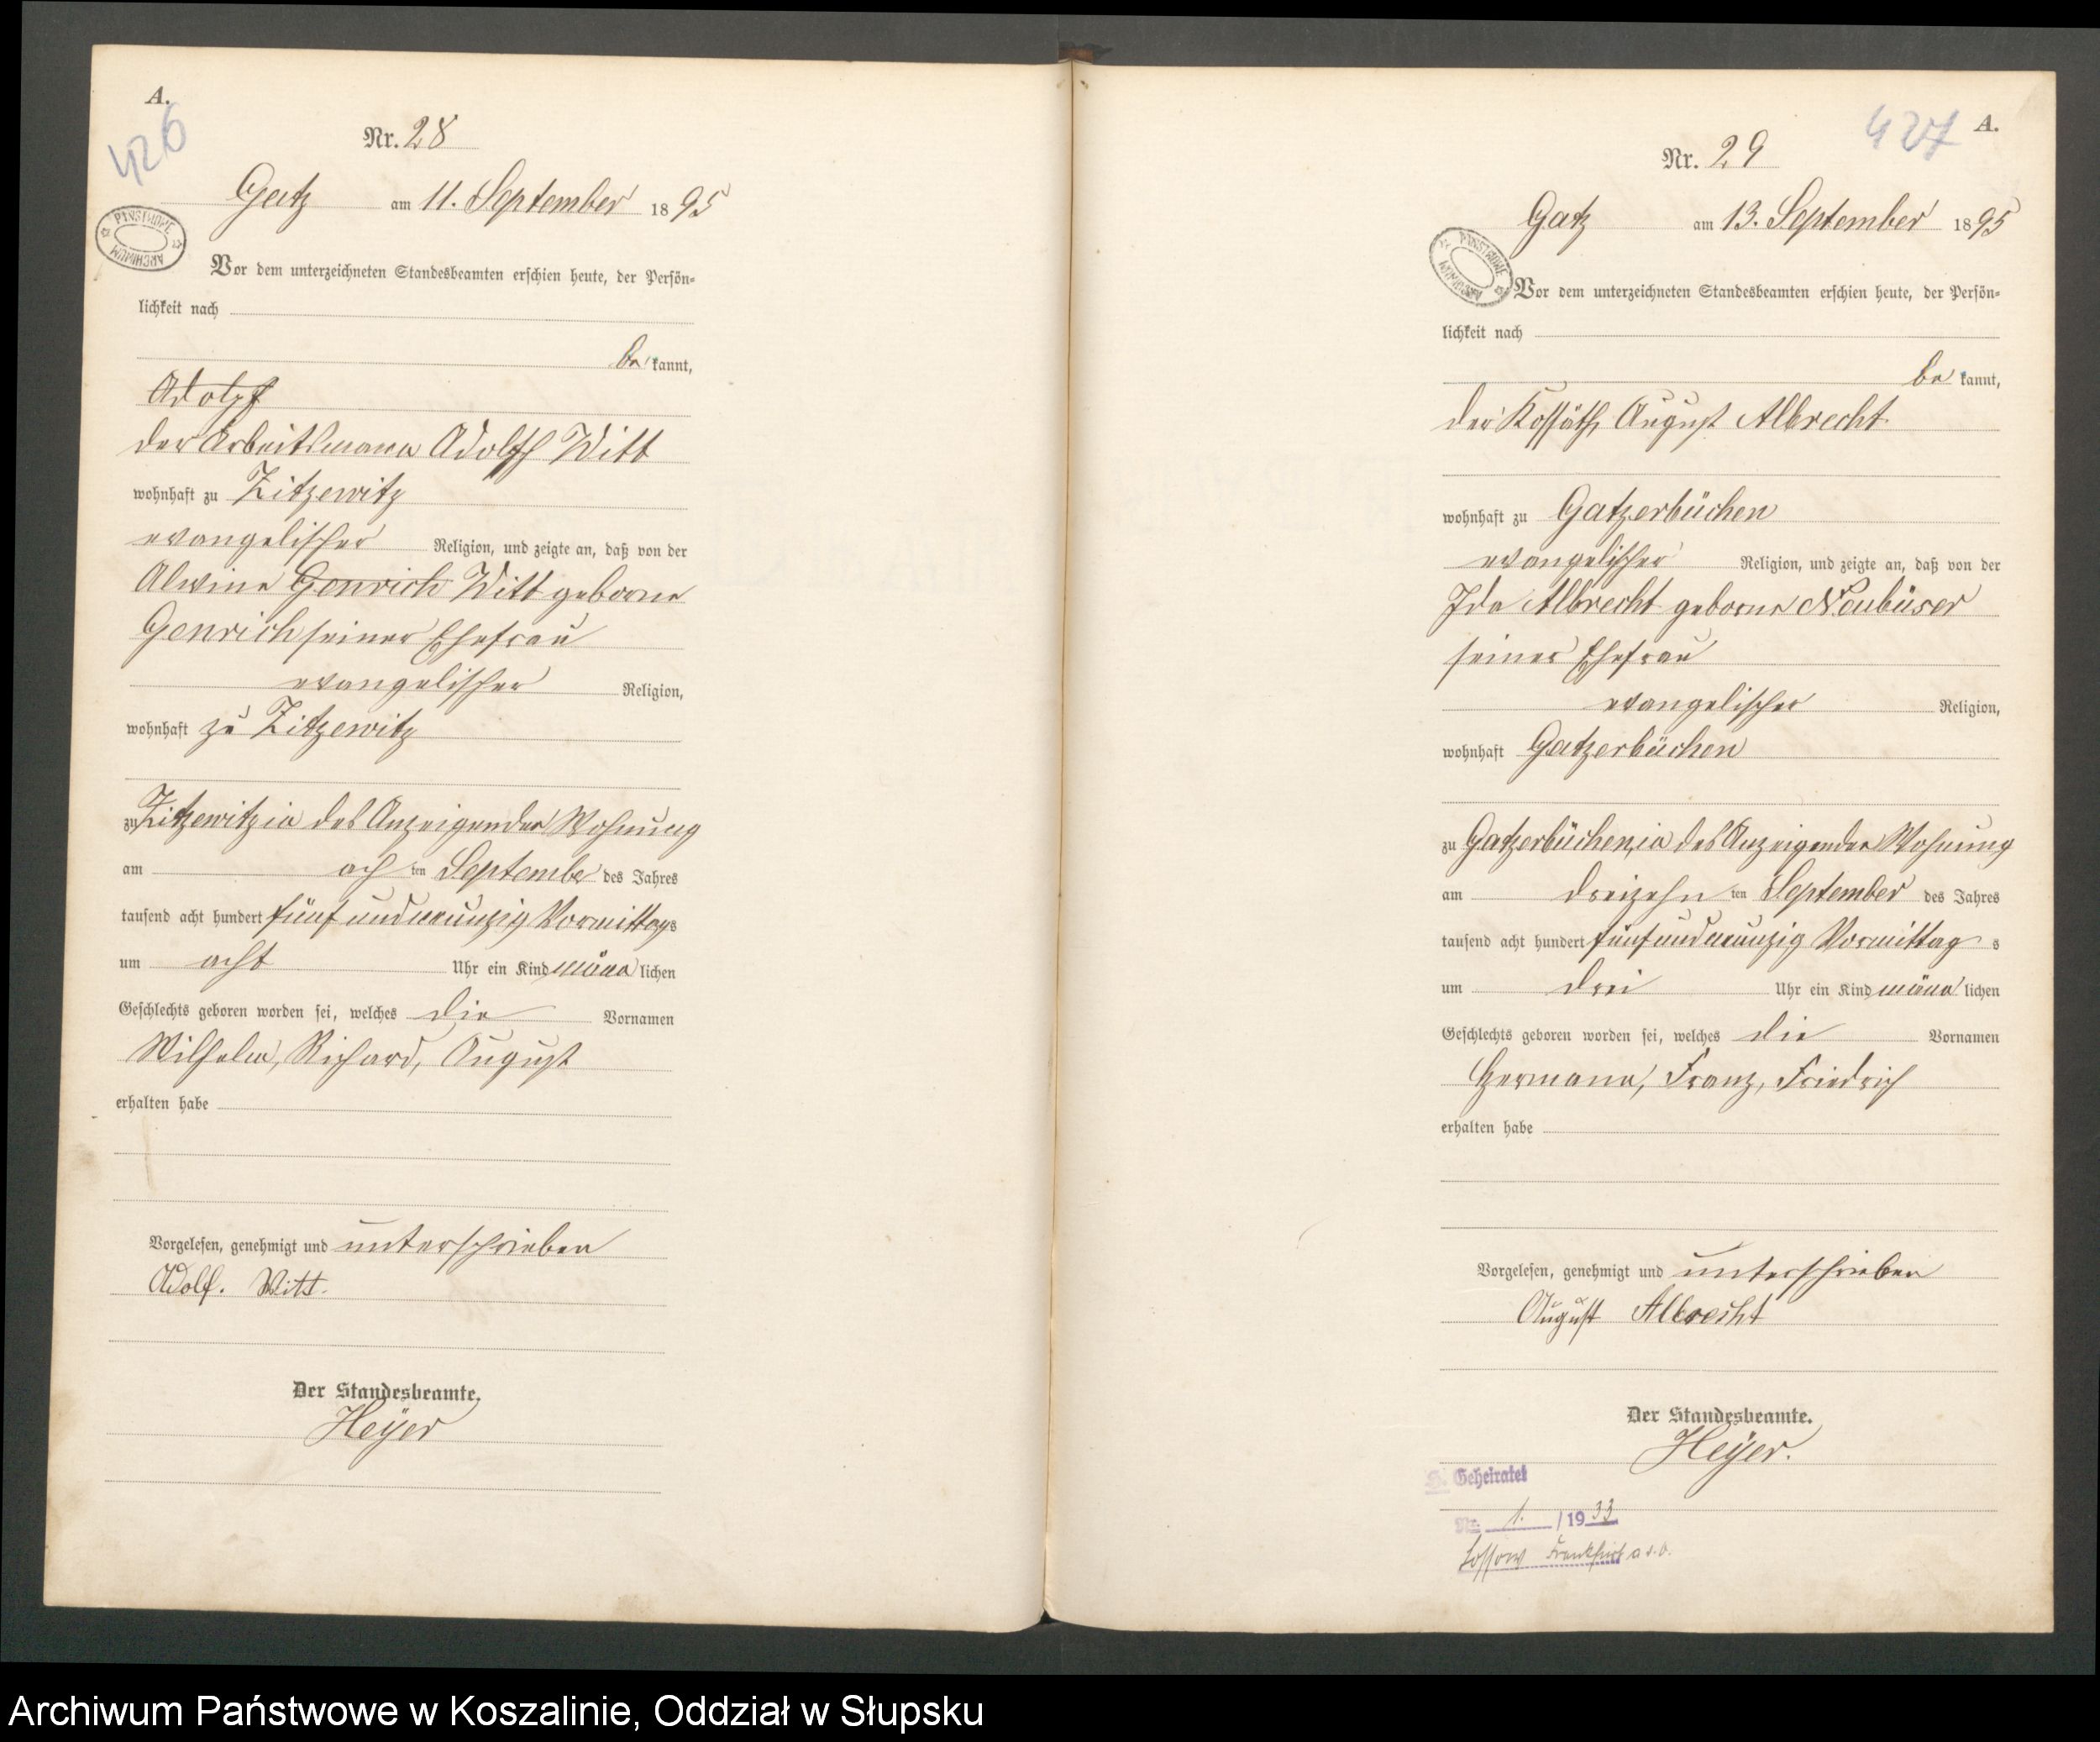 A.
426
Nr. 28
Gatz am 11. September 1895
PAŃSTWOWE ARCHIWUM
Vor dem unterzeichneten Standesbeamten erschien heute, der Persön-
lichkeit nach
be kannt,
Adolpf
der Arbeitsmann Adolph Witt
wohnhaft zu Zitzewitz
evangelischer Religion, und zeigte an, daß von der
Alwine Genrich Witt geborne
Genrich seiner Ehefrau
evangelischer Religion,
wohnhaft zu Zitzewitz
zu Zitzewitz in des Anzeigenden Wohnung
am ach ten September des Jahres
tausend acht hundert fünf und neunzig Vormittags
um acht Uhr ein Kind männ lichen
Geschlechts geboren worden sei, welches die Vornamen
Wilhelm, Richard, August
erhalten habe
Vorgelesen, genehmigt und unterschrieben
Adolf. Witt.
Der Standesbeamte.
Heÿer
427
A.
Nr. 29
Gatz am 13. September 1895
PAŃSTWOWE ARCHIWUM
Vor dem unterzeichneten Standesbeamten erschien heute, der Persön-
lichkeit nach
be kannt,
der Kossäth August Albrecht
wohnhaft zu Gatzerbüchen
evangelischer Religion, und zeigte an, daß von der
Ida Albrecht geborne Neubüser
seiner Ehefrau
evangelischer Religion,
wohnhaft Gatzerbüchen
zu Gatzerbüchen, in des Anzeigenden Wohnung
am dreizehn ten September des Jahres
tausend acht hundert fünf und neunzig Vormittag s
um drei Uhr ein Kind männ lichen
Geschlechts geboren worden sei, welches die Vornamen
Hermann, Franz, Friedrich
erhalten habe
Vorgelesen, genehmigt und unterschrieben
August Albrecht
Der Standesbeamte.
Heÿer.
Geheiratet
Nr. 1. / 1933
Lossow Frankfurt a.d.O.
Archiwum Państwowe w Koszalinie, Oddział w Słupsku